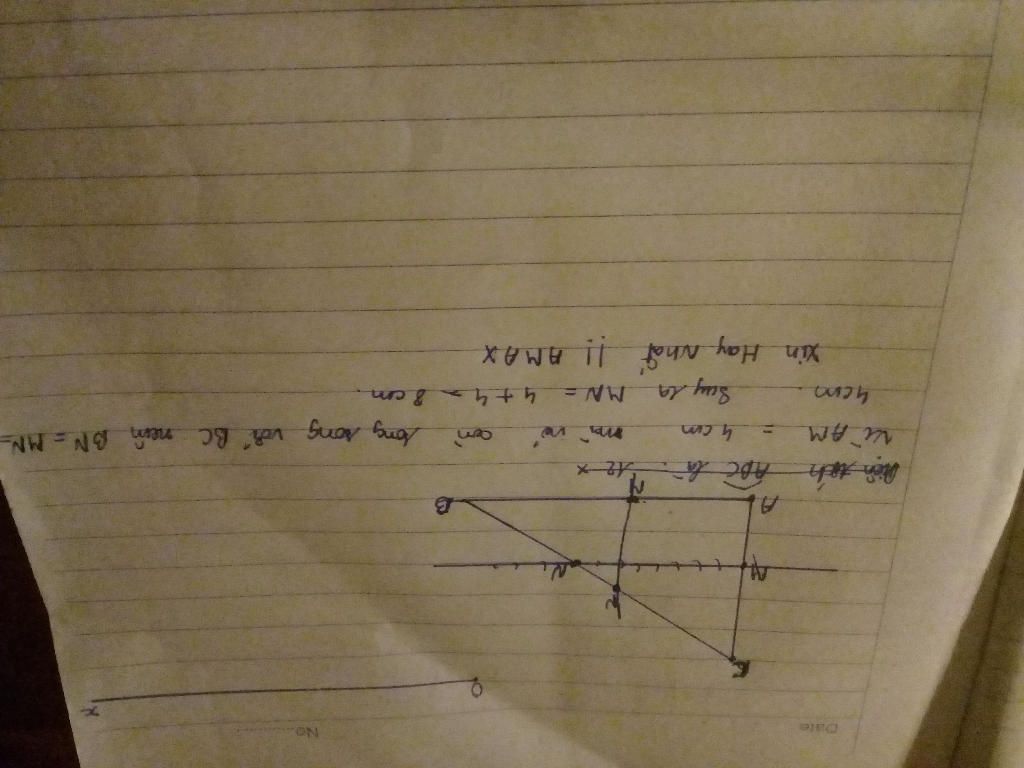 Date
No.
O
x
C
N
M
N
A
M
B
ABC là: 12 x
Vì AM = 4cm mà nó còn song song với BC nên BN = MN =
4cm. Suy ra MN = 4 + 4 = 8 cm.
Xin Hay Nhất !! AMAX